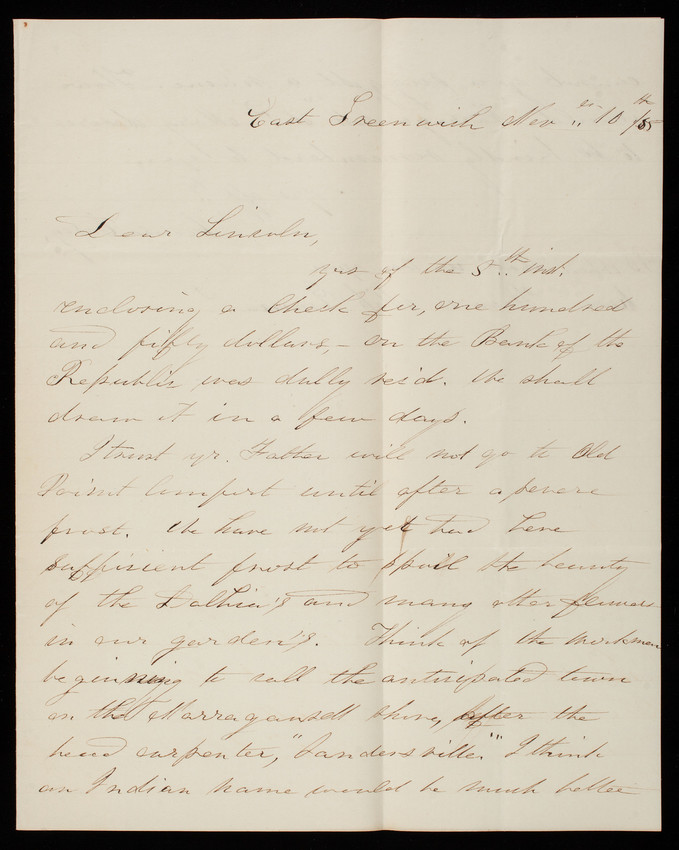 East Greenwich Nov 10th /85
Dear Lincoln,
yrs of the 5th inst.
enclosing a check for, one hundred
and fifty dollars, - on the Bank of the
Republic was dully rec'd. We shall
draw it in a few days.
I trust yr. Father will not go to Old
Point Comfort until after a severe
frost. We have not yet had here
sufficient frost to spoil the beauty
of the Dalhia's and many other flowers
in our garden's. Think of the workmen
beginning to call the anticipated town
on the Narragansett shore, after the
head carpenter, "Sandersville." I think
an Indian name would be much better